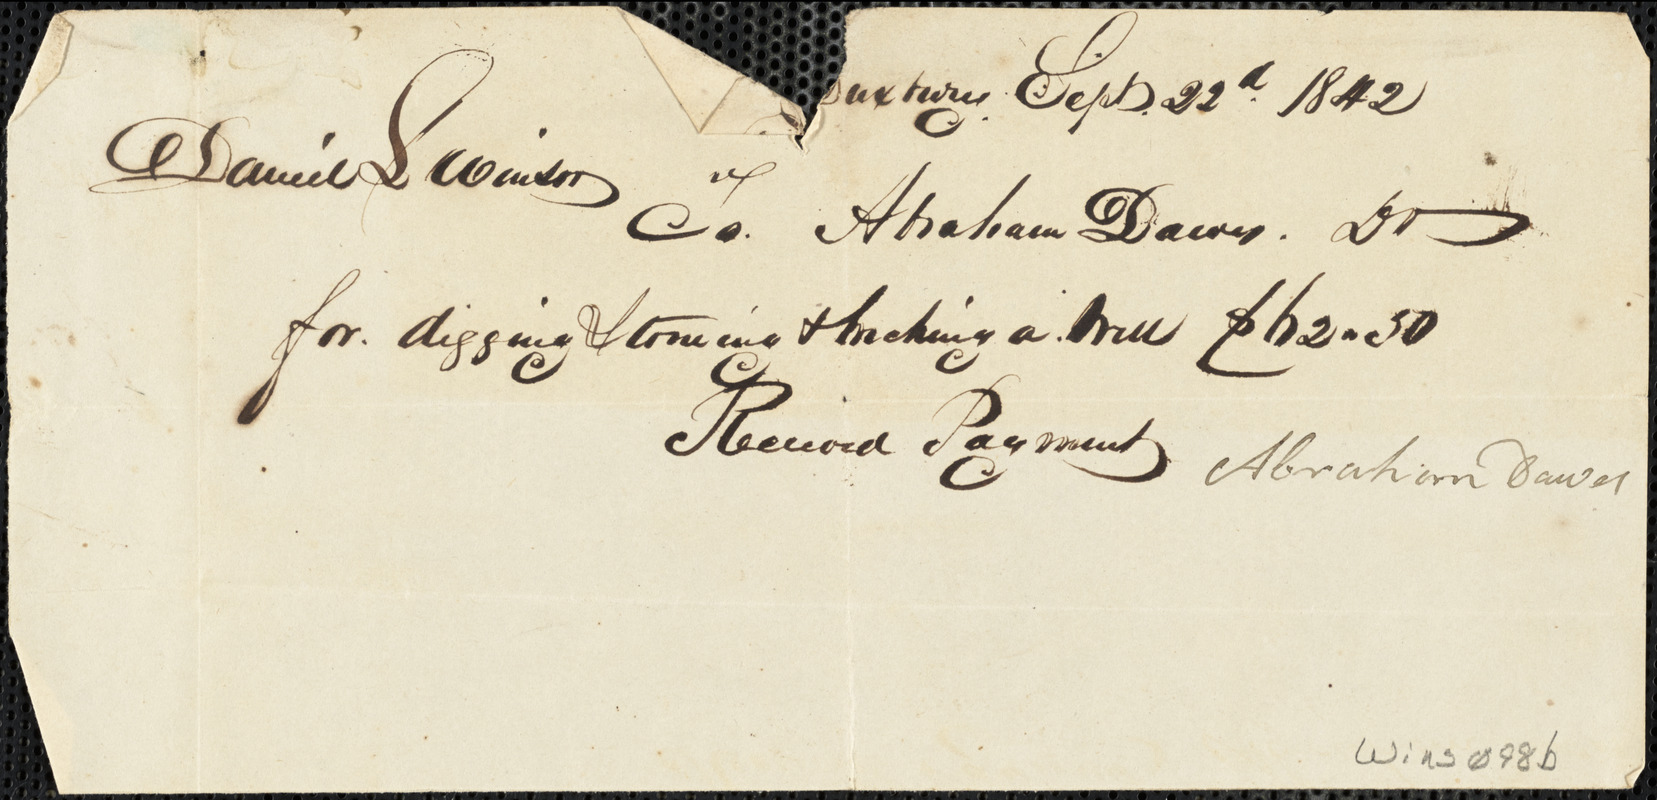 Duxbury. Sept. 22d. 1842
Daniel L Winsor
To. Abraham Dawes. Dr
for. digging Stoneing & bricking a. Well $62"50
Received Payment Abraham Dawes
Wins 098b